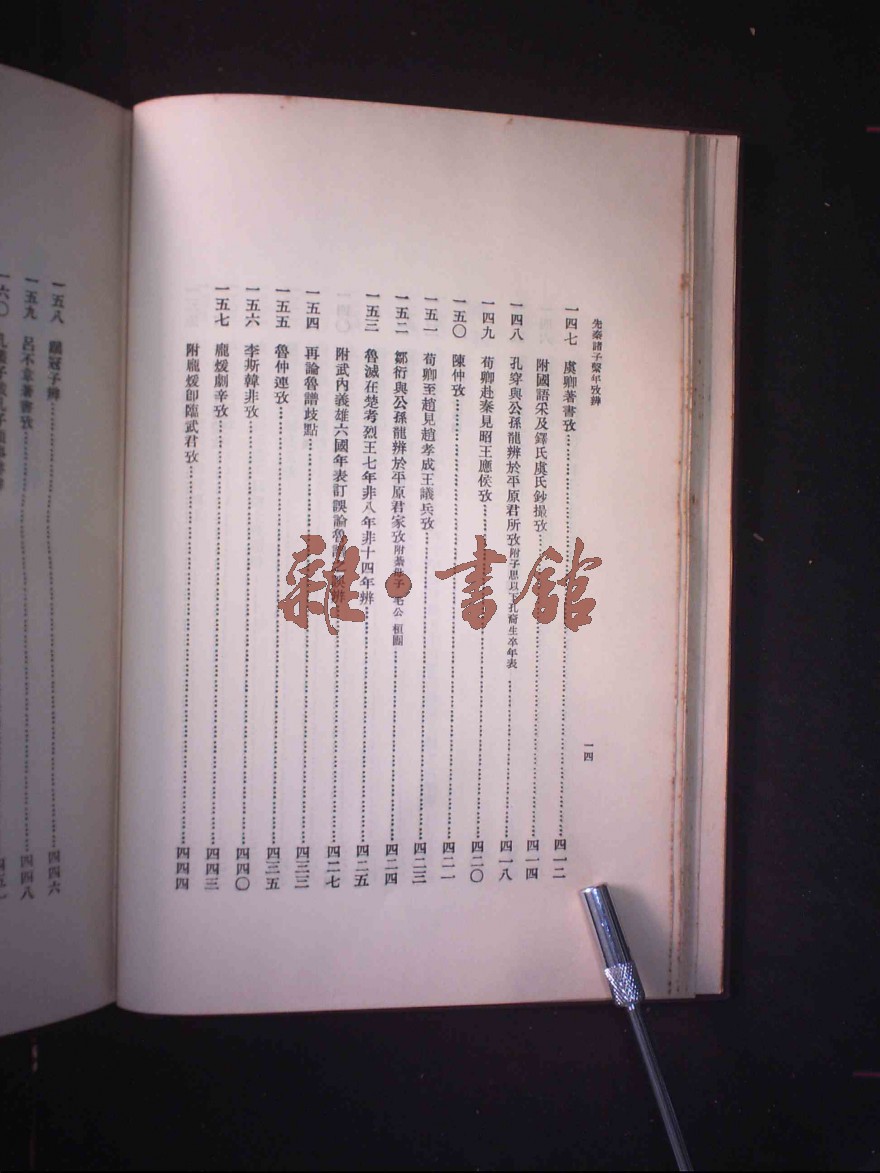 先秦諸子繫年攷辨
一四七 虞卿著書攷……四一二
附國語采及鐸氏虞氏鈔撮攷……四一四
一四八 孔穿與公孫龍辨於平原君所攷附子思以下孔裔生卒年表……四一八
一四九 荀卿赴秦見昭王應侯攷……四二〇
一五〇 陳仲攷……四二一
一五一 荀卿至趙見趙孝成王議兵攷……四二三
一五二 鄒衍與公孫龍辨於平原君家攷附綦毋子 毛公 桓團……四二四
一五三 魯滅在楚考烈王七年非八年非十四年辨……四二五
附武內義雄六國年表訂誤論魯譜之誤辨……四二七
一五四 再論魯譜歧點……四三三
一五五 魯仲連攷……四三五
一五六 李斯韓非攷……四四〇
一五七 龐煖劇辛攷……四四三
附龐煖卽臨武君攷……四四四
一四
一五八 鶡冠子辨……四四六
一五九 呂不韋著書攷……四四八
一六〇
雜·書館